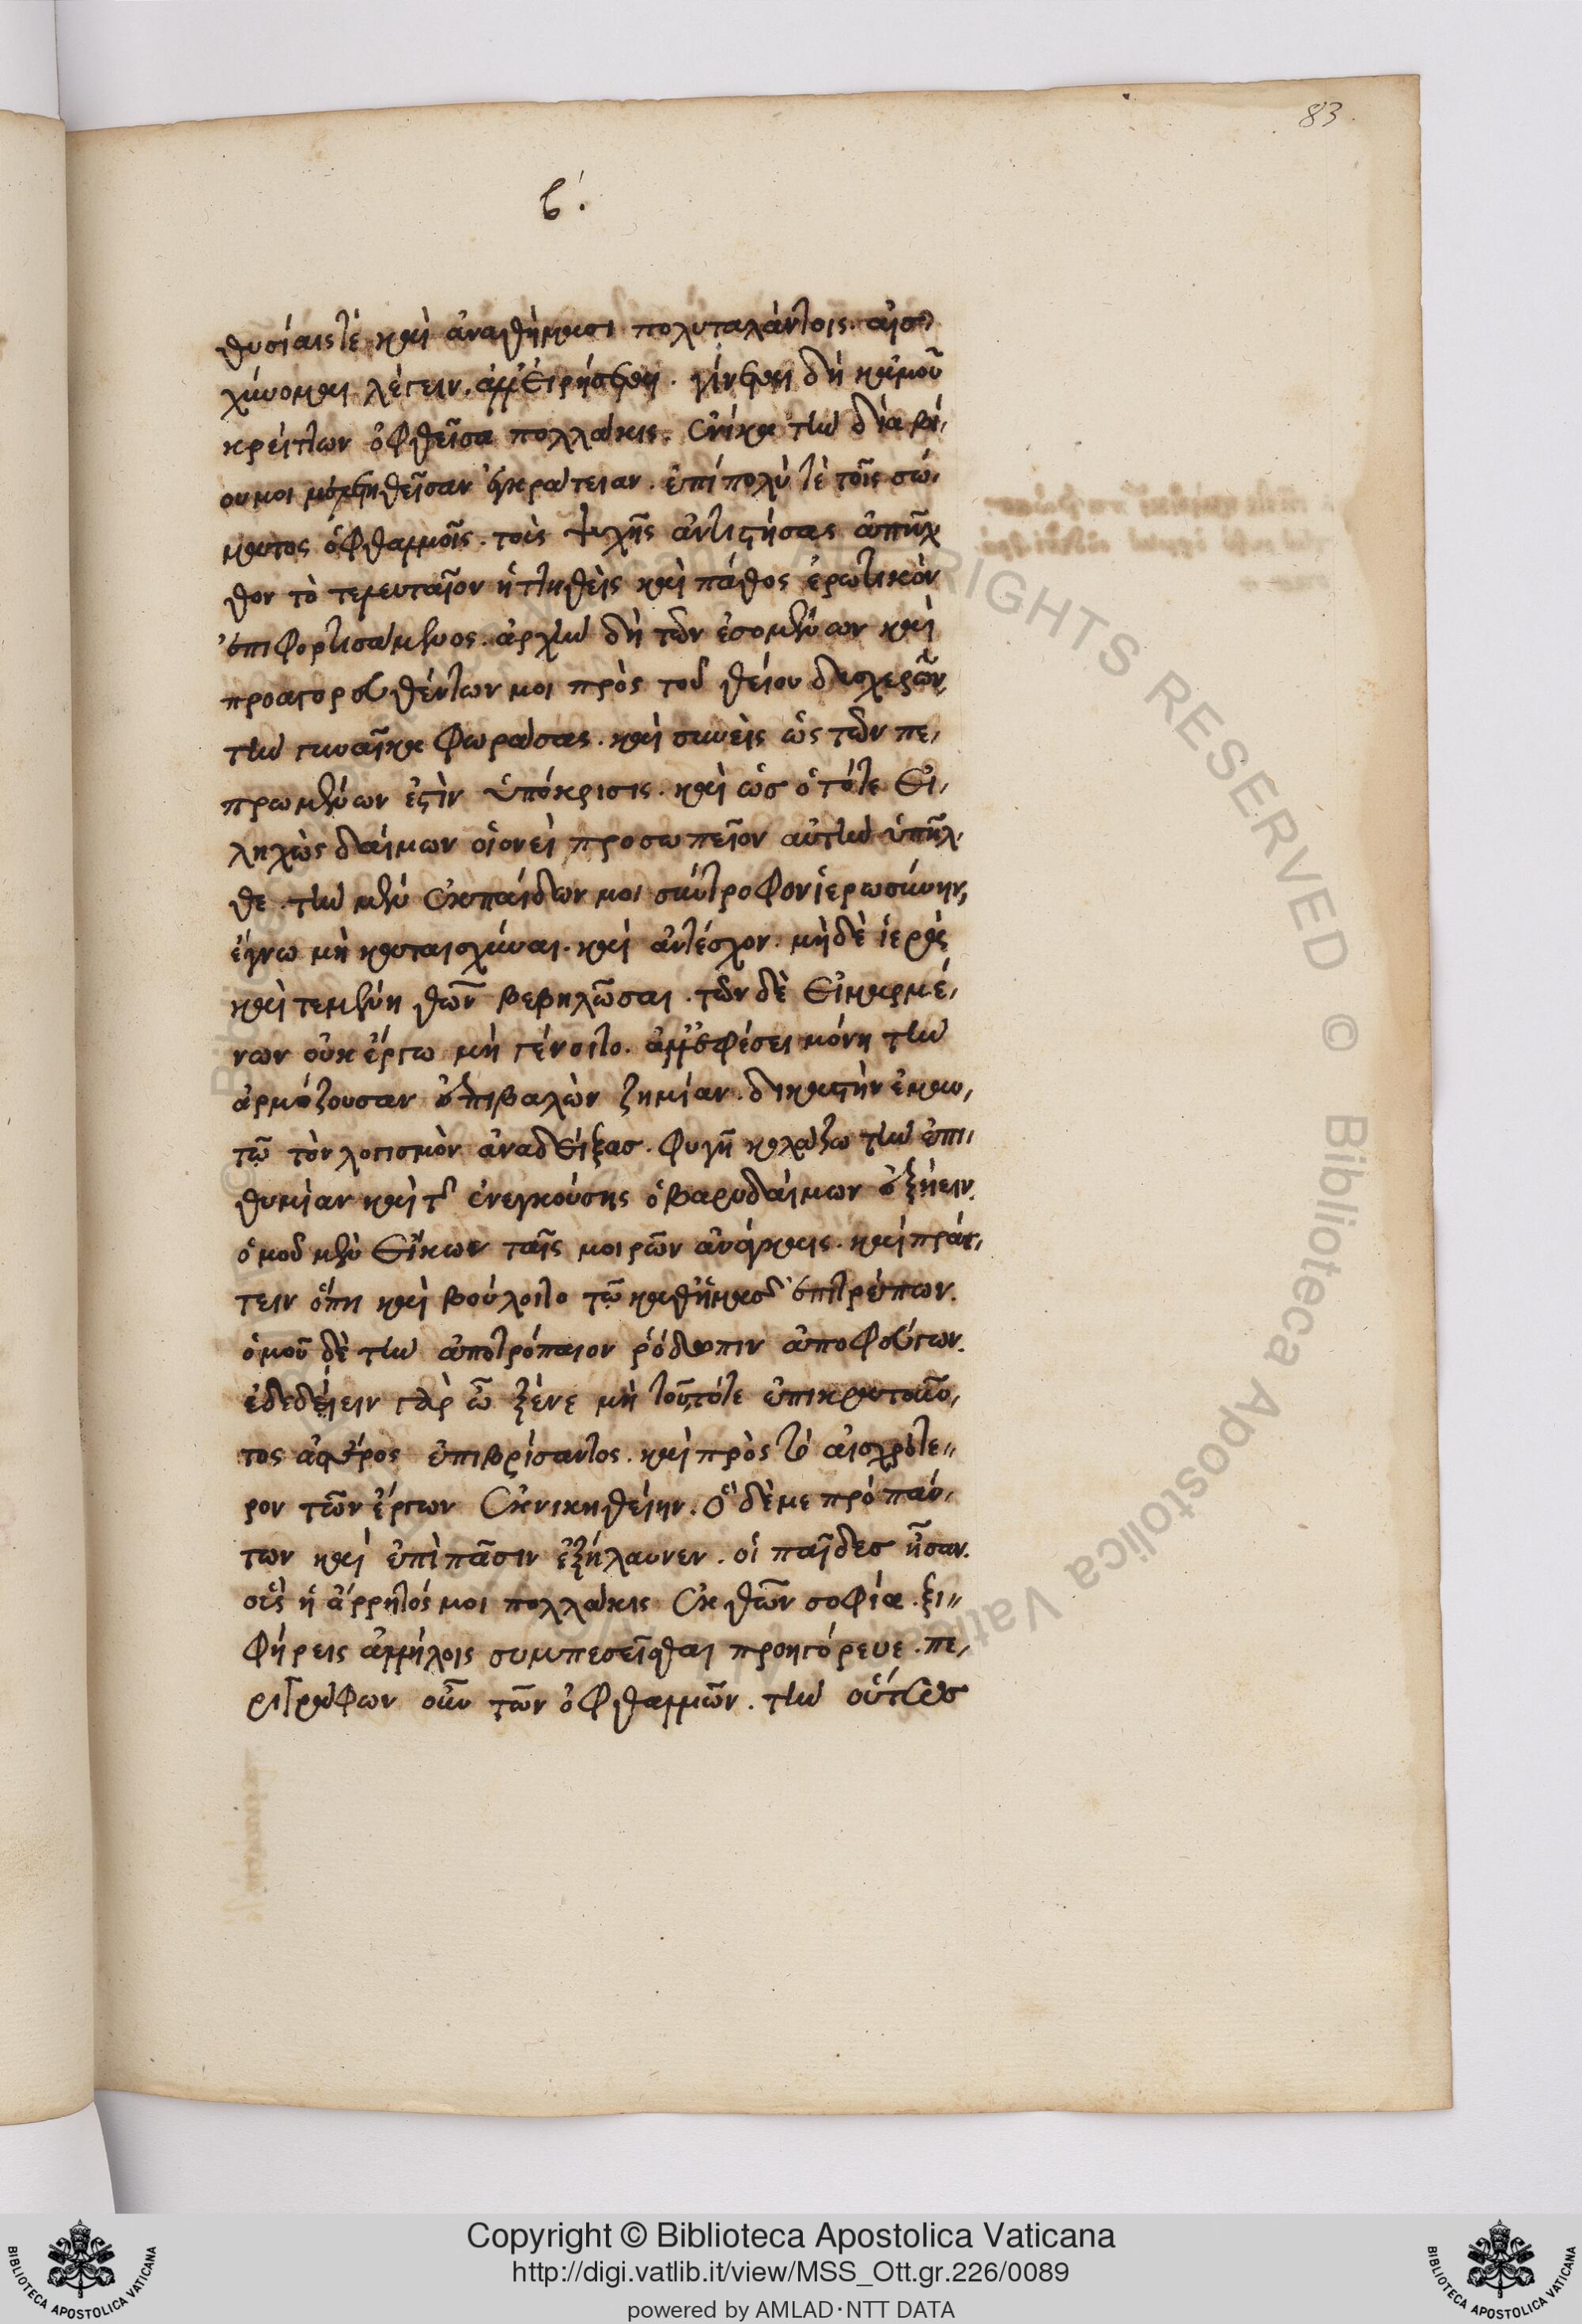 83
β´.
θυσίαις τὲ καὶ ἀναθήμασι πολυταλάντοις. αἰσ
χύνομαι λέγειν, ἀλλ᾽ εἰρήσεται. γίνεται δὴ κἀμοῦ
κρείττων ὀφθεῖσα πολλάκις. ἐνίκα τὴν διὰ βί,
ου μοι μελετηθεῖσαν ἐγκράτειαν. ἐπιπολὺ τὲ τοῖς σώ,
ματος ὀφθαλμοῖς. τοὺς ψυχῆς ἀντιστήσας ἀπῆλ
θον τὸ τελευταῖον ἡττηθεὶς καὶ πάθος ἐρωτικὸν
ἐπιφορτισάμενος. ἀρχὴν δὴ τῶν ἐσομένων καὶ
προαγορευθέντων μοι πρὸς τοῦ θείου δυσχερῶν,
τὴν γυναῖκα φωράσας. καὶ συνεὶς ὡς τῶν πε,
πρωμένων ἐστὶν ὑπόκρισις. καὶ ὡσ ὁ τότε εἰ,
ληχὼς δαίμων οἱονεὶ προσωπεῖον αὐτὴν ὑπῆλ,
θε. τὴν μὲν ἐκ παίδων μοι σύντροφον ἱερωσύνην,
ἔγνω μὴ καταισχῦναι. καὶ ἀντέσχον. μὴ δὲ ἱερὰ
καὶ τεμένη θεῶν βεβηλῶσαι. τῶν δὲ εἱμαρμέ,
νων οὐκ ἔργω μὴ γένοιτο. ἀλλ᾽ ἐφέσει μόνη τὴν
ἁρμόζουσαν ἐπιβαλὼν ζημίαν. δικαστὴν ἐμαυ,
τῶ τὸν λογισμὸν ἀναδείξασ. φυγῆ κολάζω τὴν ἐπι,
θυμίαν καὶ τῆς ἐνεγκούσης ὁ βαρυδαίμων ἐξήειν.
ὁμοῦ μὲν εἴκων ταῖς μοιρῶν ἀνάγκαις. καὶ πράτ,
τειν ὅπη καὶ βούλοιτο τῶ καθ᾽ ἡμᾶσ ἐπιτρέπων.
ὁμοῦ δὲ τὴν ἀποτρόπαιον ῥόδωπιν ἀποφεύγων.
ἐδεδίειν γὰρ ὦ ξένε μὴ τοῦ τότε ἐπικρατοῦν,
τος ἀστέρος ἐπιβρίσαντος. καὶ πρὸς τὸ αἰσχρότε,,
ρον τῶν ἔργων ἐκνικηθείην. ὃ δὲ με πρὸ πάν,
των καὶ ἐπὶ πᾶσιν ἐξήλαυνεν. οἱ παῖδεσ ἦσαν.
οὓς ἡ ἄρρητός μοι πολλάκις ἐκ θεῶν σοφία. ξι,,
φήρεις ἀλλήλοις συμπεσεῖσθαι προηγόρευε. πε,
ριγράφων οὖν τῶν ὀφθαλμῶν. τὴν οὕτως
Copyright © Biblioteca Apostolica Vaticana
http://digi.vatlib.it/view/MSS_Ott.gr.226/0089
powered by AMLAD·NTT DATA